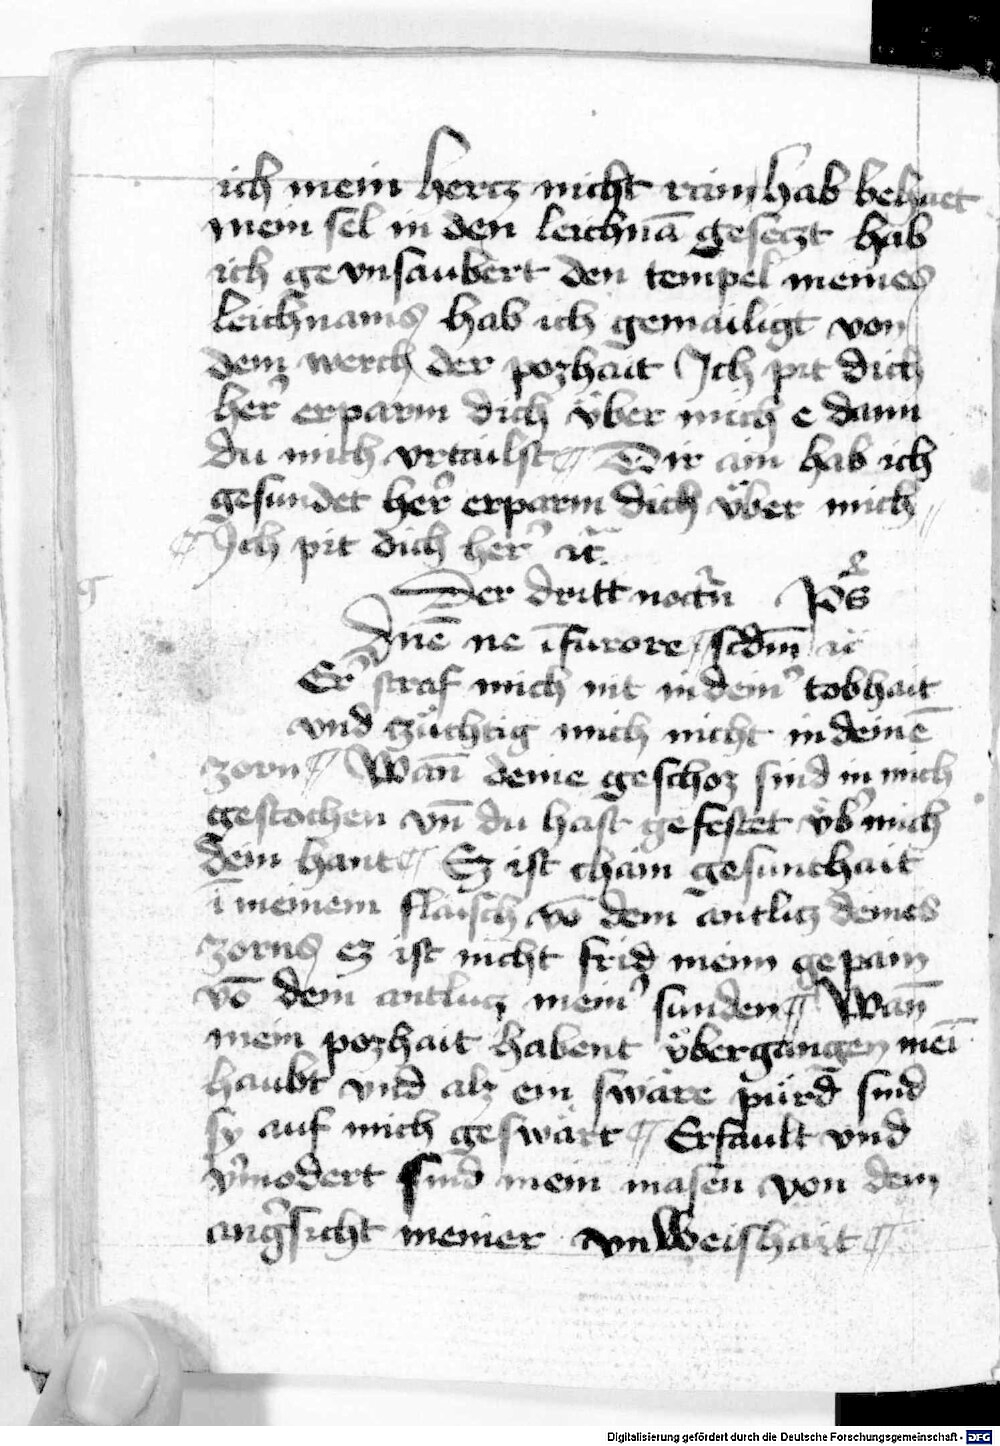 ich mein hertz nicht rain hab behuet
mein sel in den leichnā gesetzt hab
ich gevnsaubert den tempel meines
leichnams hab ich gemailigt von
dem werch der pozhait Ich pit dich
her᷑ erparm dich v̈ber mich e dann
du mich vrtailst ¶ Dir ain hab ich
gesundet her᷑ erparm dich v̈ber mich
¶ Ich pit dich her᷑
Der dritt noctn̄ Ps̄
Dn̄e ne ī furore scdm̄
Er᷑ straf mich nit in deinʾ tobhait
vnd züchtig mich nicht in deinē
zorn ¶ Wan̄ deine geschoz sind in mich
gestochen vn̄ du hast gefestet v̈bʾ mich
dein hant ¶ Ez ist chain gesunthait
ī meinem flaisch vō dem antlitz deines
zorns ez ist nicht frid meim gepain
vō dem antlutz meinʾ sunden ¶ Wan̄
mein pozhait habent v̈bergangen mei̅
haubt vnd alz ein swäre pürd̄ sind
sy auf mich geswärt ¶ Erfault vnd
vʾmodert sind mein masen von dem
angʾsicht meiner vnweishait ¶
Digitalisierung gefördert durch die Deutsche Forschungsgemeinschaft - DFG